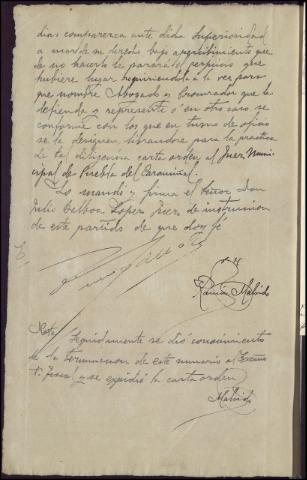 dias comparezca ante dicha Superioridad
a usar de su derecho bajo apercibimiento que
de no hacerlo le parará el perjuicio que
hubiere lugar, requiriendola á la vez para
que nombre Abogado y Procurador que la
defienda y represente ó en otro caso se
conforme con los que en turno de oficio
se la designen, librandose para la practica
de tal diligencia carta orden, al Juez Muni-
cipal de Puebla del Caramiñal.
Lo mandó y firma el Señor Don
Julio Lopez Juez de instruccion
de este partido de que doy fé
Ramón
Nota, Seguidamente se dió conocimiento
de la terminacion de este sumario al
Fiscal y se expidió la carta orden